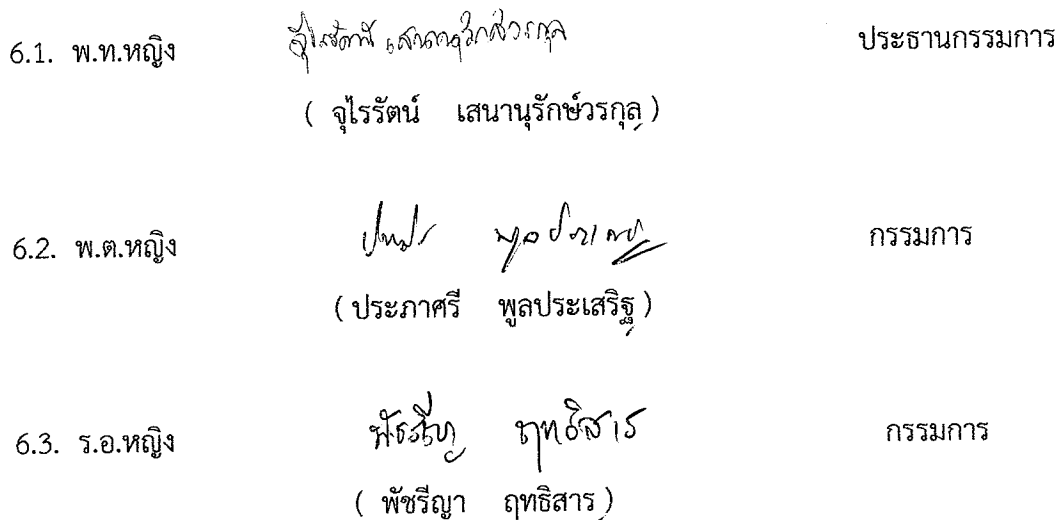 6.1. พ.ท.หญิง จุไรรัตน์ เสนานุรักษ์วรกุล ประธานกรรมการ
( จุไรรัตน์ เสนานุรักษ์วรกุล )
6.2. พ.ต.หญิง กรรมการ
( ประภาศรี พูลประเสริฐ )
6.3. ร.อ.หญิง พัชรีญา ฤทธิสาร กรรมการ
( พัชรีญา ฤทธิสาร )